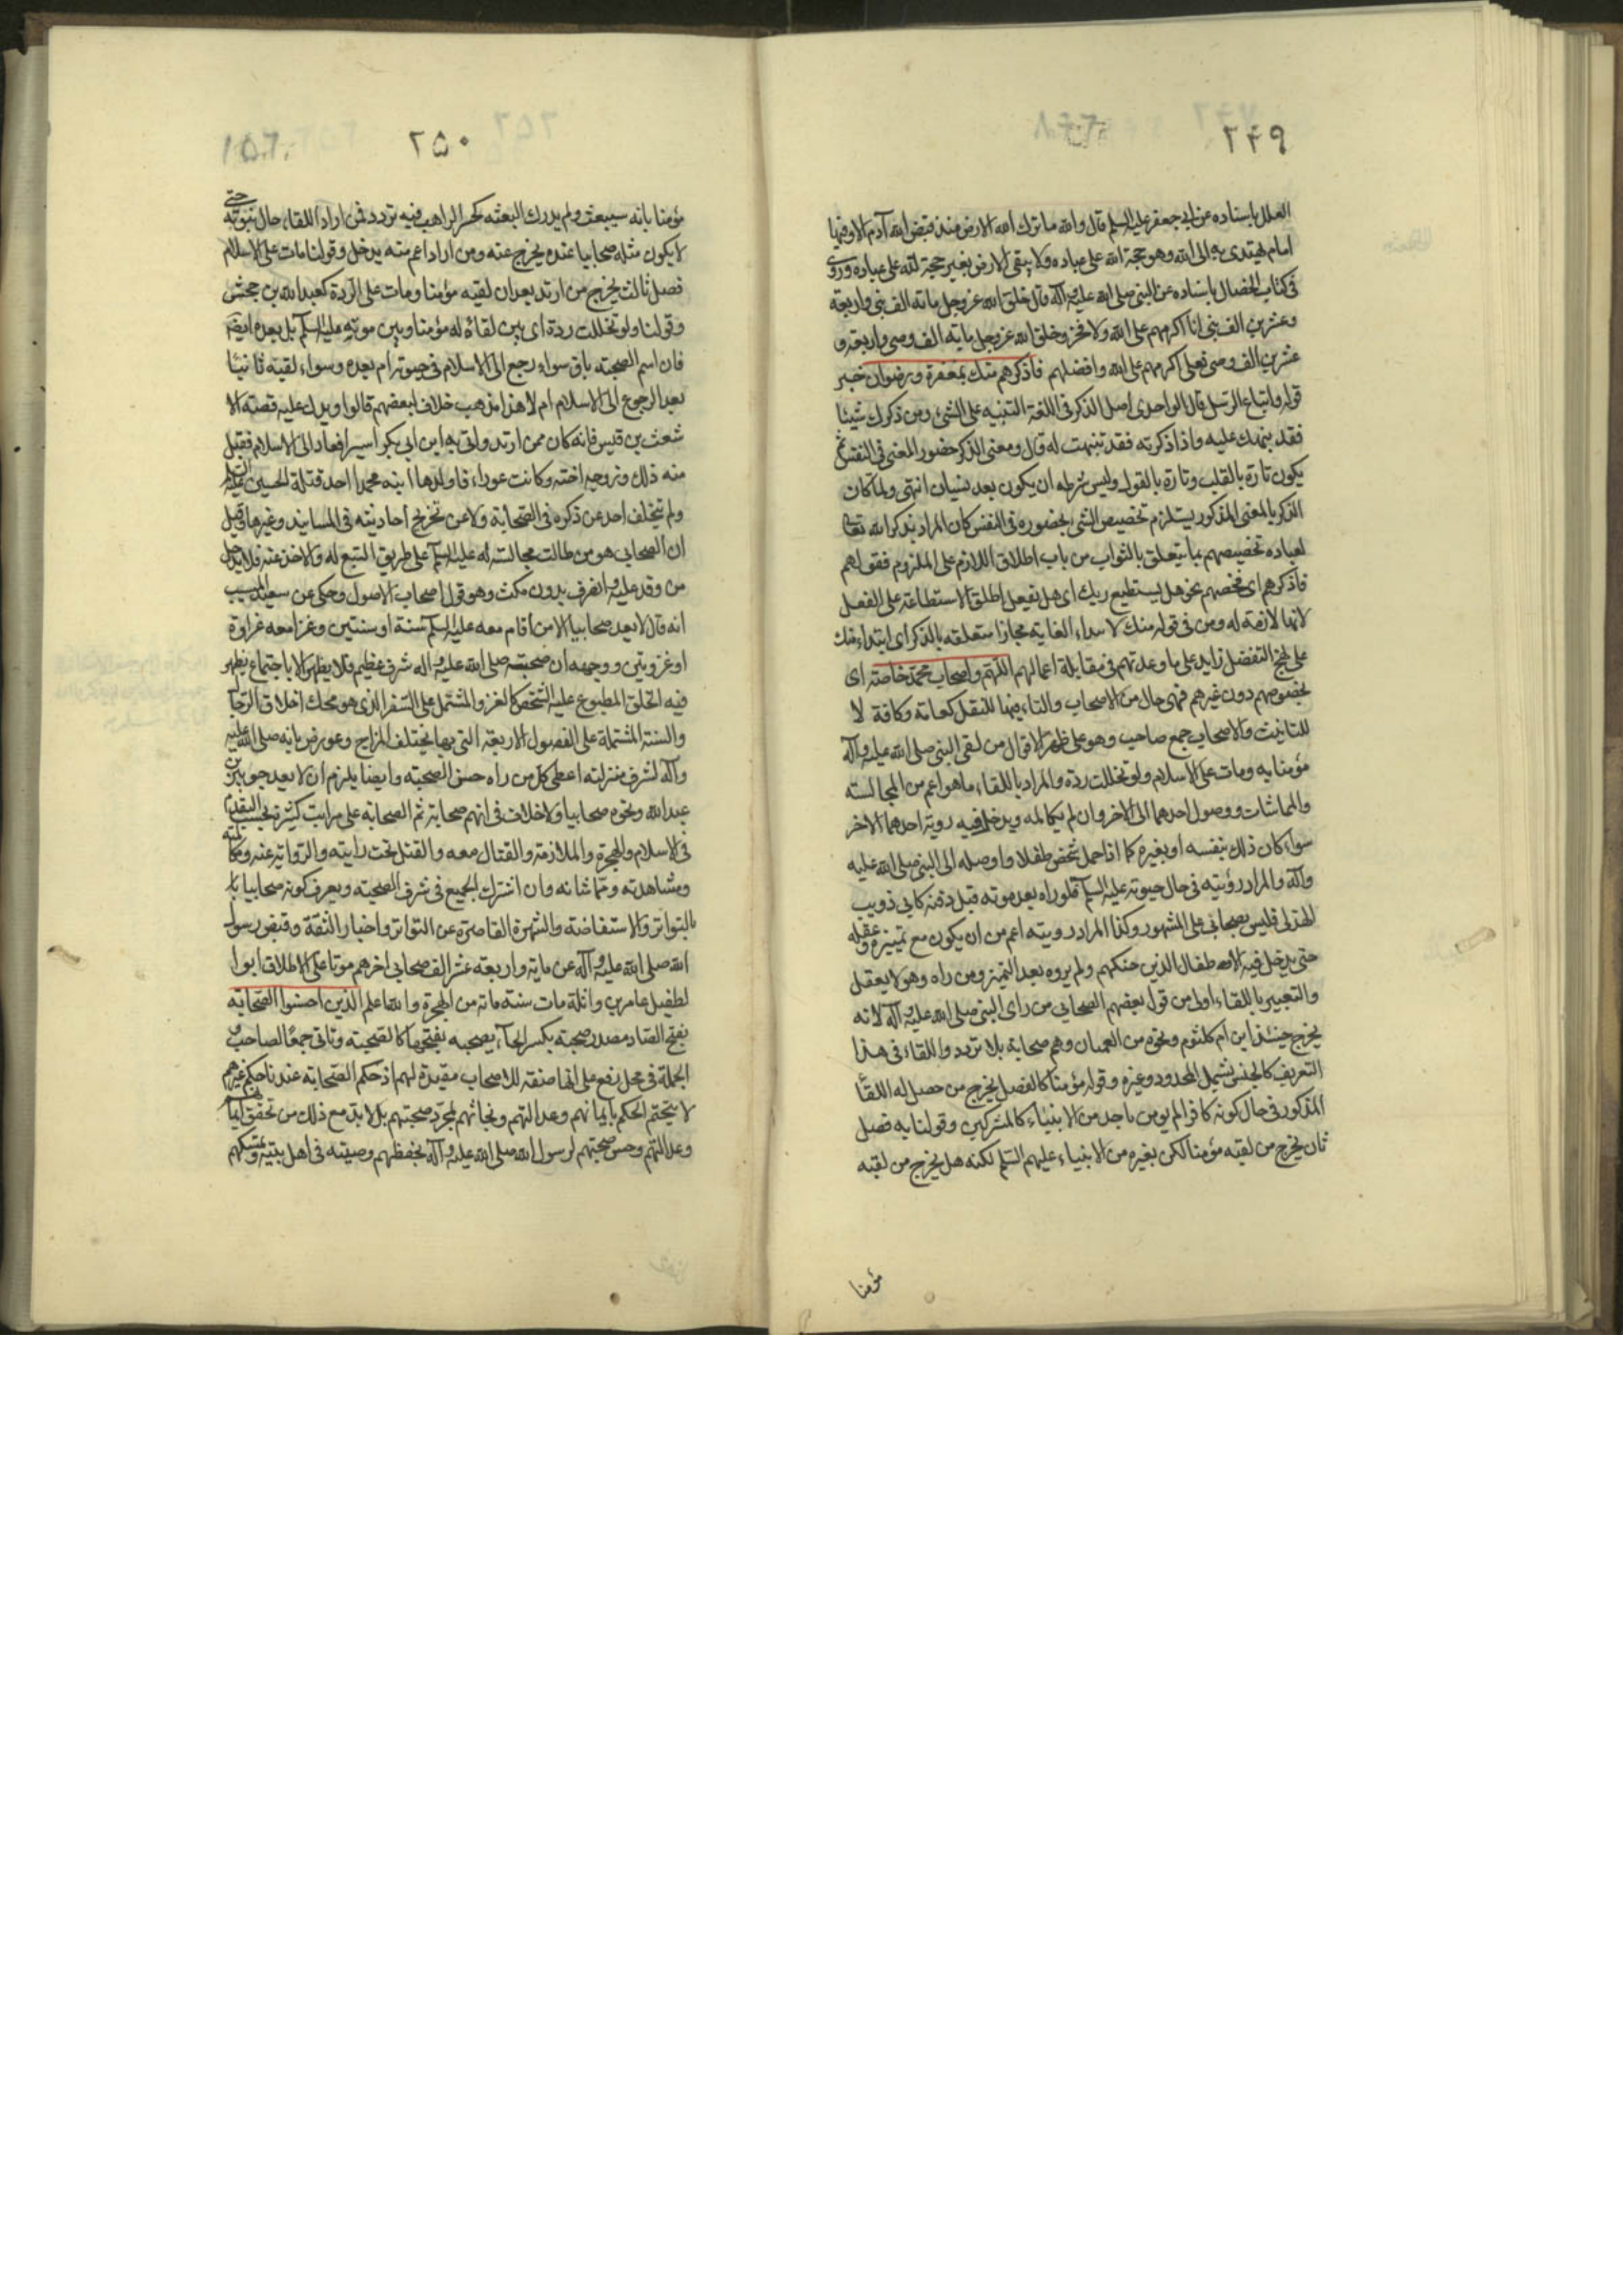 ٢۴٩
العلل باسناده عن ابي جعفر عليه السلم قال والله ما ترك الله الارض منذ قبض الله آدم الا وفيها
امام يهتدى به الى الله وهو حجة الله على عباده ولا يبقى الارض بغير حجة لله على عباده وروى
فى كتاب الخصال باسناده عن النبى صلى الله عليه وآله قال خلق الله عز وجل مائة الف نبى واربعة
وعشرين الف نبى انا اكرمهم على الله ولا فخر وخلق الله عز وجل ماية الف وصى واربعة و
عشرين الف وصى فعلى اكرمهم على الله وافضلهم فاذكرهم منك بمغفرة ورضوان خبر
قوله واتباع الرسل قال الواحدى اصل الذكر فى اللغة التنبيه على الشئ ومن ذكرك شيئا
فقد نبهك عليه واذا ذكرته فقد تنبهت له قال ومعنى الذكر حضور المعنى فى النفس ثم
يكون تارة بالقلب وتارة بالقول وليس شرطه ان يكون بعد نسيان انتهى ولما كان
الذكر بالمعنى المذكور يستلزم تخصيص الشئ بحضوره فى النفس كان المراد بذكر الله تعالى
لعباده تخصيصهم بما يتعلق بالثواب من باب اطلاق اللازم على الملزوم فقوله
فاذكرهم اى فخصهم نحو هل يستطيع ربك اى هل يفعل اطلق الاستطاعة على الفعل
لانها لازمة له ومن فى قوله منك لابتداء الغاية مجازا متعلقه بالذكر اى ابتداء منك
على نهج التفضل زايد على ما وعدتهم فى مقابلة اعمالهم اللهم واصحاب محمد خاصة اى
بخصوصهم دون غيرهم فهى حال من الاصحاب والتاء فيها للنقل كعامة وكافة لا
للتانيث والاصحاب جمع صاحب وهو على ظهر الاقوال من لقى النبى صلى الله عليه وآله
مؤمنا به ومات على الاسلام ولو تخللت ردة والمراد باللقاء ما هو اعم من المجالسة
والمماشات ووصول احدهما الى الاخر وان لم يكالمه ويدخل فيه روية احدهما الاخر
سواء كان ذلك بنفسه او بغيره كما اذا حمل شخص طفلا واوصله الى النبى صلى الله عليه
وآله والمراد رؤيته فى حال حيوته عليه السلم فلو راه بعد موته قبل دفنه كابي ذويب
الهذلى فليس بصحابى على المشهور وكذا المراد رويته اعم من ان يكون مع تمييزه وعقله
حتى يدخل فيه الاطفال الذين حنكهم ولم يروه بعد التميز ومن راه وهو لا يعقل
والتعبير باللقاء اولى من قول بعضهم الصحابى من راى النبى صلى الله عليه وآله لانه
يخرج حينئذ ابن ام كلثوم ونحوه من العميان وهم صحابة بلا تردد واللقاء فى هذا
التعريف كالجنس يشمل المحدود وغيره وقوله مؤمنا كالفصل يخرج من حصل له اللقاء
المذكور فى حال كونه كافرا لم يومن باحد من الانبياء كالمشركين وقولنا به فصل
ثان يخرج من لقيه مؤمنا لكن بغيره من الانبياء عليهم السلم لكنه هل يخرج من لقيه
مؤمنا
٢۵٠
مؤمنا بانه سيبعث ولم يدرك البعثه كحر الراهب فيه تردد فمن اراد اللقاء حال نبوته حتى
لا يكون مثله صحابيا عنده يخرج عنه ومن اراد اعم منه يدخل وقولنا مات على الاسلام
فصل ثالث يخرج من ارتد بعد ان لقيه مؤمنا ومات على الردة كعبد الله بن جحش
وقولنا ولو تخللت ردة اى بين لقائه له مؤمنا وبين موته عليه السلم بل بعده ايضا
فان اسم الصحبة باق سواء رجع الى الاسلام فى حيوته ام بعده وسواء لقيه ثانيا
بعد الرجوع الى الاسلام ام لا هذا مذهب خلاف لبعضهم قالوا ويدل عليه قصة الا
شعث بن قيس فانه كان ممن ارتد واتى به ابن ابي بكر اسيرا فعاد الى الاسلام فقبل
منه ذلك وزوجه اخته وكانت عوراء فاولدها ابنه محمدا احد قتلة الحسين عليه السلم
ولم يتخلف احد عن ذكره فى الصحابة ولا عن تخريج احاديثه فى المسانيد وغيرها وقيل
ان الصحابى هو من طالت مجالسته له عليه السلم على طريق التبع له والاخذ عنه فلا يدخل
من وفد عليه وانصرف بدون مكث وهو قول اصحاب الاصول وحكى عن سعيد المسيب
انه قال لا يعد صحابيا الا من اقام معه عليه السلم سنة او سنتين وغزا معه غزاوة
او غزوتين ووجهه ان صحبته صلى الله عليه واله شرف عظيم فلا يظهر الا باجتماع يظهر
فيه الخلق المطبوع عليه الشخص كالغزو المشتمل على السفر الذى هو محك اخلاق الرجا
والسنة المشتملة على الفصول الاربعة التى بها يختلف المزاج وعورض بانه صلى الله عليه
وآله لشرف منزلته اعطى كل من راه حسن الصحبة وايضا يلزم ان لا يعد جرير بن
عبد الله ونحوه صحابيا ولا خلاف فى انهم صحابة ثم الصحابة على مراتب كثيرة بحسب التقدم
فى الاسلام والهجرة والملازمة والقتال معه والقتل تحت رايته والرواية عنه ومكالمته
ومشاهدته ومماشاته وان اشترك الجميع فى شرف الصحبة ويعرف كونه صحابيا با
بالتواتر والاستفاضة والشهرة القاصرة عن التواتر واخبار الثقة وقبض رسول
الله صلى الله عليه وآله عن ماية واربعة عشر الف صحابى اخرهم موتا على الاطلاق ابوا
لطفيل عامر بن واثلة مات سنة مائة من الهجرة والله اعلم الذين احسنوا الصحابة
بفتح الصاد مصدر صحبة بكسر الحآء يصحبه بفتحها كالصحبة وتاتى جمعا لصاحب و
الجملة فى محل رفع على انها صفة للاصحاب مقيدة لهم اذ حكم الصحابة عندنا حكم غيرهم
لا يتحتم الحكم بايمانهم وعدالتهم ونجاتهم بمجرد صحبتهم بل لابد مع ذلك من تحقق ايمانهم
وعدالتهم وحسن صحبتهم لرسول الله صلى الله عليه وآله بحفظهم وصيته فى اهل بيته وتمسكهم